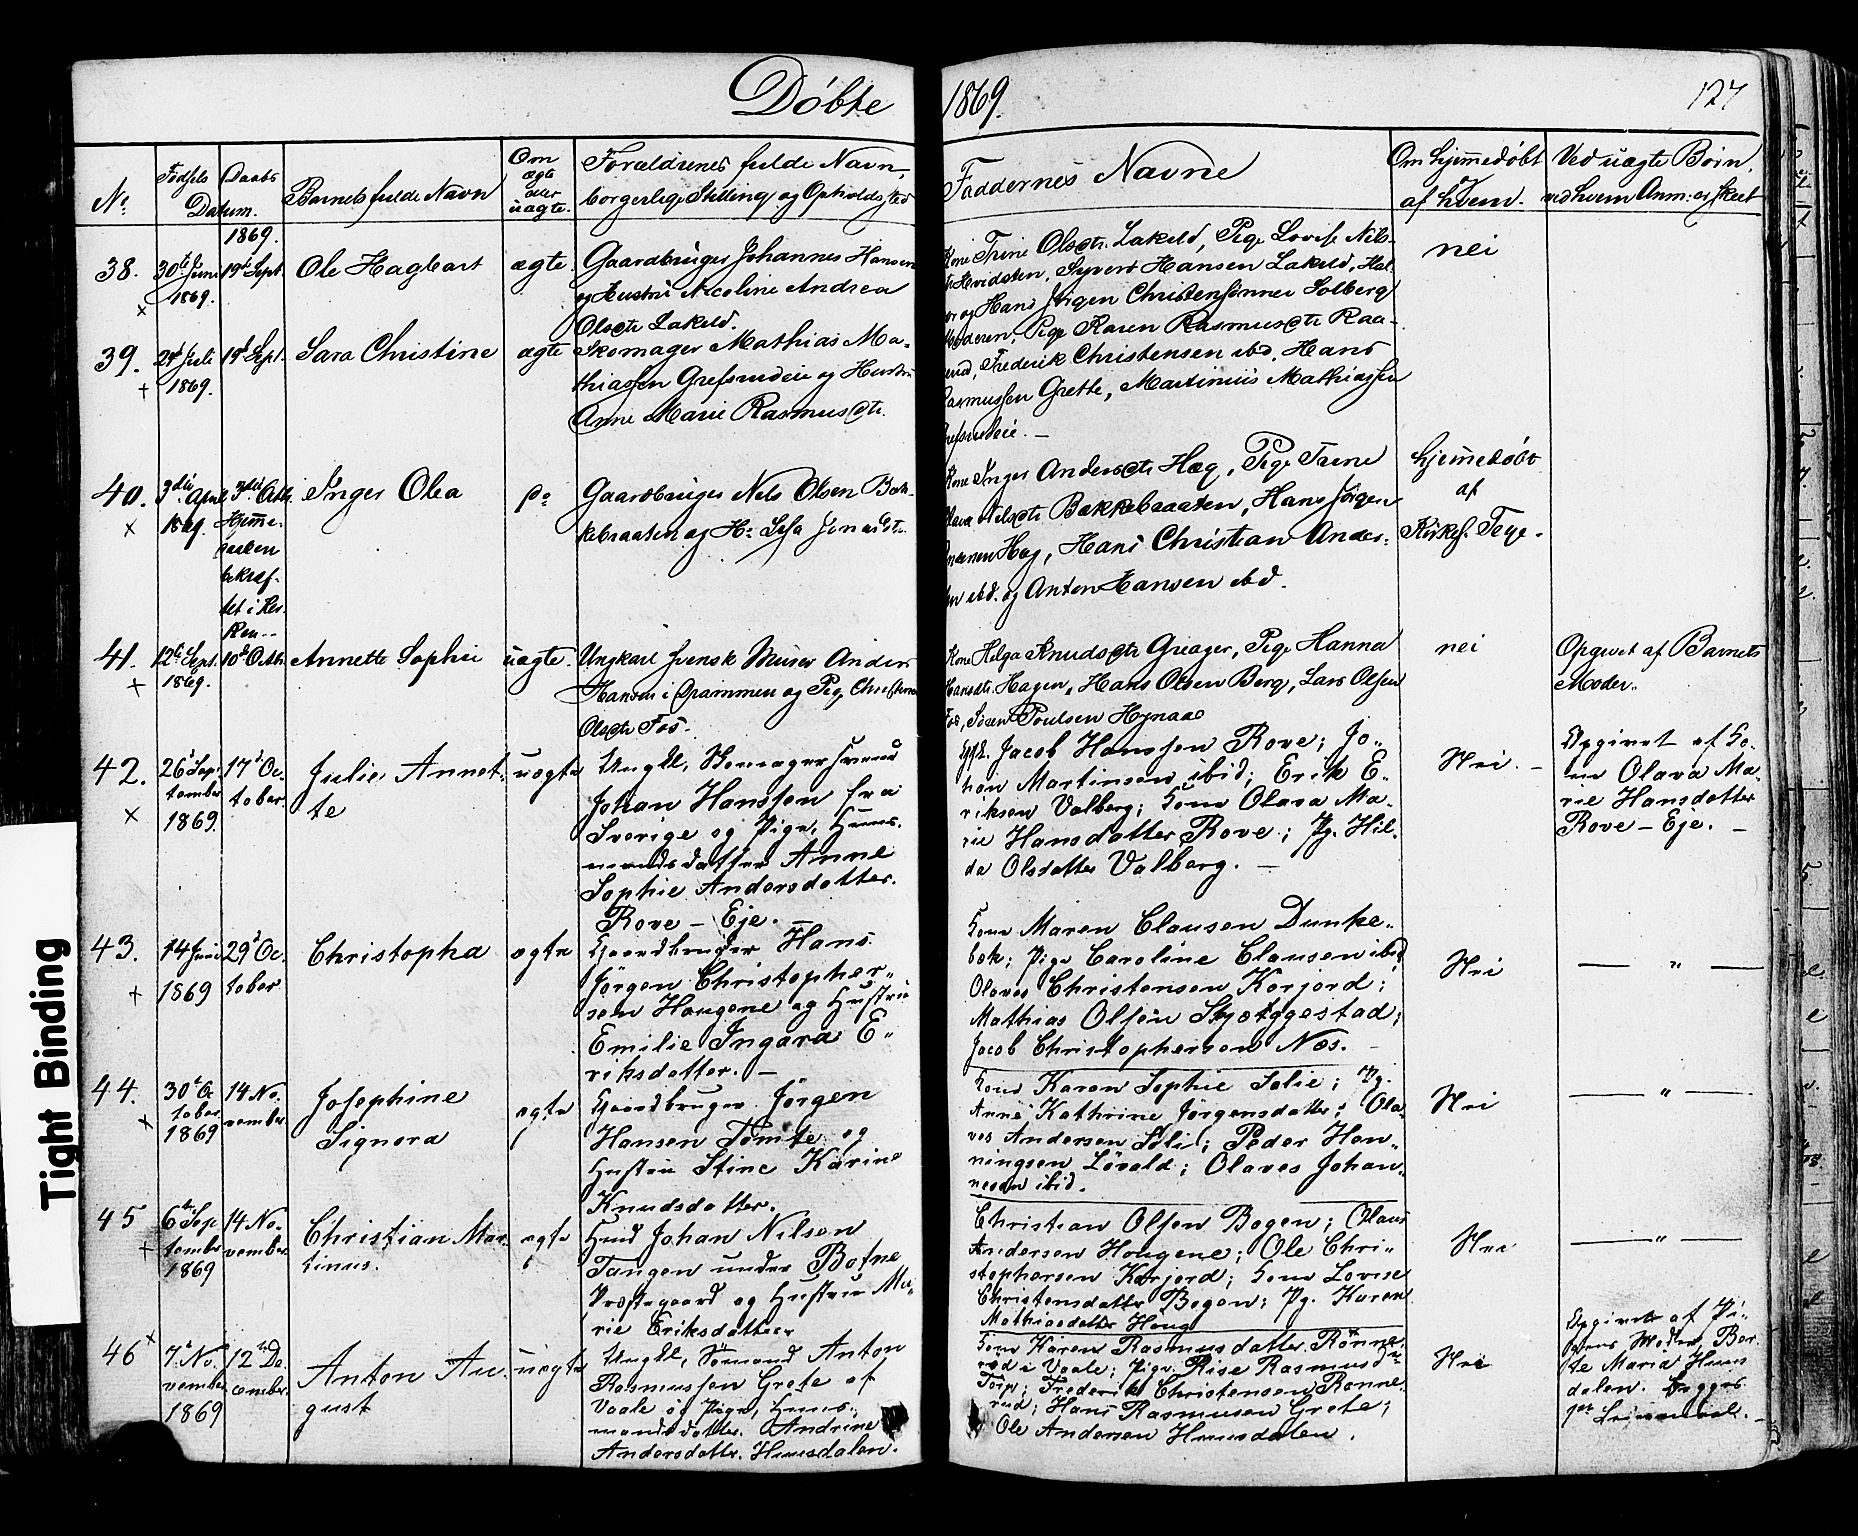 Døbte 1869. 127
No Fødsels Daabs Datum. Barnets fulde Navn Om ægte eller uægte. Forældrenes fulde Navn, borgerlige Stilling og Opholdssted
Faddernes Navne Om hjemmedøbt af hvem. Ved uægte Børn, ved hvem Anm: er skeet
1869.
38. 30te Juni 1869. 19de Sept. Ole Hagbart ægte.
Gaardbruger Johannes Hansen
og Hustru Nicoline Andrea
Olsdtr Lakeld.
Kone Trine Olsdtr. Lakeld, Pige Lovise Nils-
Syvert Hansen Lakeld, Hal-
og Hans Jørgen Christensønner Solberg
nei
39. 29de Juli 1869. 19de Sept. Sara Christine ægte
Skomager Mathias Ma-
thiassen Grefsrudeie og Hustru
Anne Marie Rasmusdtr.
Moderen, Pige Karen Rasmusdtr Raa-
Frederik Christensen ibd, Hans
Rasmussen Grette, Martinius Mathiassen
Grefsrudeie. —
40. 3die April 1869. 3die Octb. Hjemme-
daaben
bekræf-
tet i Kir-
ken -
Inger Olea Do
Gaardbruger Nels Olsen Bak-
kebraaten og H:
Kone Inger Andersdtr Hæg, Pige Trine
Olava Nelsdtr Bakkebraaten, Hans Jørgen
Andersen Hæg, Hans Christian Ander-
sen ibd. og Anton Hansen ibd.
hjemmedøbt
af
Kirkes. Tege.
41. 12te Sept. 1869. 10de Octb. Annette Sophie uægte.
Ungkarl Svensk Murer Anders
Hansen i Drammen og Pige Christine
Olsdtr Fos.
Kone Helga Knudsdtr Greager, Pige Hanna
Hansdtr. Hagen, Hans Olsen Berg, Lars Olsen
Fos, Søren Poulsen Hynaae
nei
Opgivet af Barnets
Moder.
42. 26de September 1869. 17de October. Julie Annet-
te uægte
Ungkl, Skomagersvend
Johan Hanssen fra
Sverige og Pige, Huus-
mandsdatter Anne
Sophie Andersdatter.
Rove – Eje. —
Jacob Hanssen Rove; Jo-
han Martinsen ibid; Erik E-
riksen Valberg; Kone Olava Ma-
rie Hansdatter Rove; Pg. Hil-
da Olsdatter Valberg. —
Nei. —
Opgivet af Ko-
ne Olava Ma-
rie Hansdatter
Rove – Eje. —
43. 14 Juni 1869 29de October Christopha ægte
Gaardbruger Hans
Jørgen Christopher-
sen Hougene og Hustru
Emilie Ingara E-
riksdatter. —
Kone Maren Clausen Dunke-
bek; Pige Caroline Clausen ibid
Olaves Christensen Korjord;
Mathias Olsen Skjøtggestad;
Jacob Christophersen Næs. —
Nei — " —
44. 30te October 1869 14 November Josephine
Signora ægte
Gaardbruger Jørgen
Hansen Tømte og
Hustru Stine Karine
Knudsdatter.
Kone Karen Sophie Solie; Pg.
Anne Kathrine Jørgensdatter; Ola-
ves Andersen Solie; Peder Hen-
ningsen Løvald; Olaves Johan-
nesen ibid.
Nei — " —
45 6te September 1869 14 November. Christian Mar-
tinus. ægte
Husmd Johan Nilsen
Tangen under Botne
Præstegaard og Hustru Ma-
rie Eriksdatter
Christian Olsen Bogen; Olaus
Andersen Hougene; Ole Chri-
stophersen Korjord; Kone Lovise
Christensdatter Bogen; Pg. Karen
Mathiasdatter Houg
Nei — " —
46 7de November 1869 12te December. Anton Au-
gust uægte
Ungkl, Sømand Anton
Rasmussen Grete af
Vaale og Pige, Huus-
mandsdatter. Andrine
Andersdatter. Huusdalen.
Kone Karen Rasmusdatter Rønne-
rød i Vaale; Pige Rise Rasmusd
Torp; Frederik Christensen Rønne-
rud; Hans Rasmusen Grete;
Ole Andersen Huusdalen.
Nei
Opgivet af Pi-
gens Moder, Ber-
te Maria Huus-
dalen.
Tight Binding